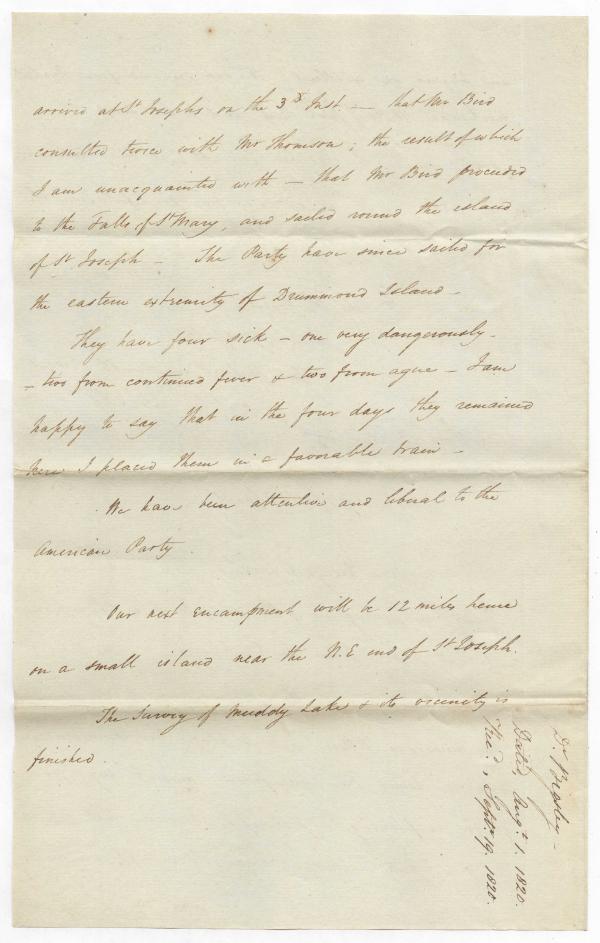 arrived at St Josephs on the 3d Inst. — that Mr Bird
consulted twice with Mr Thomson; the result of which
I am unacquainted with — that Mr Bird proceeded
to the Falls of St Mary, and sailed round the island
of St Joseph — The Party have since sailed for
the eastern extremity of Drummond Island —
They have four sick — one very dangerously —
— two from continued fever & two from ague — I am
happy to say that in the four days they remained
here I placed them in a favorable train —
We have been attentive and liberal to the
American Party.
Our next encampment will be 12 miles hence
on a small island near the N.E end of St Joseph.
The Survey of Muddy Lake & its vicinity is
finished.
Dr Bigsby —
Dated, Augt. 1. 1820.
Recd., Septr. 19. 1820.